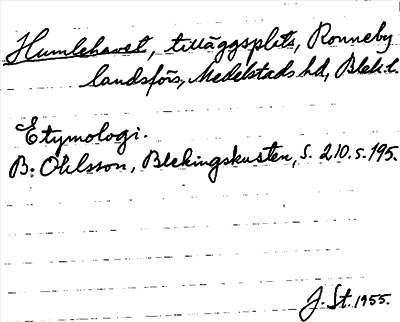 Humlehavet, tilläggsplats, Ronneby
landsförs, Medelstads hd, Blek.l.
Etymologi.
B. Ohlsson, Blekingskusten, s. 210. s. 195.
J. St. 1955.